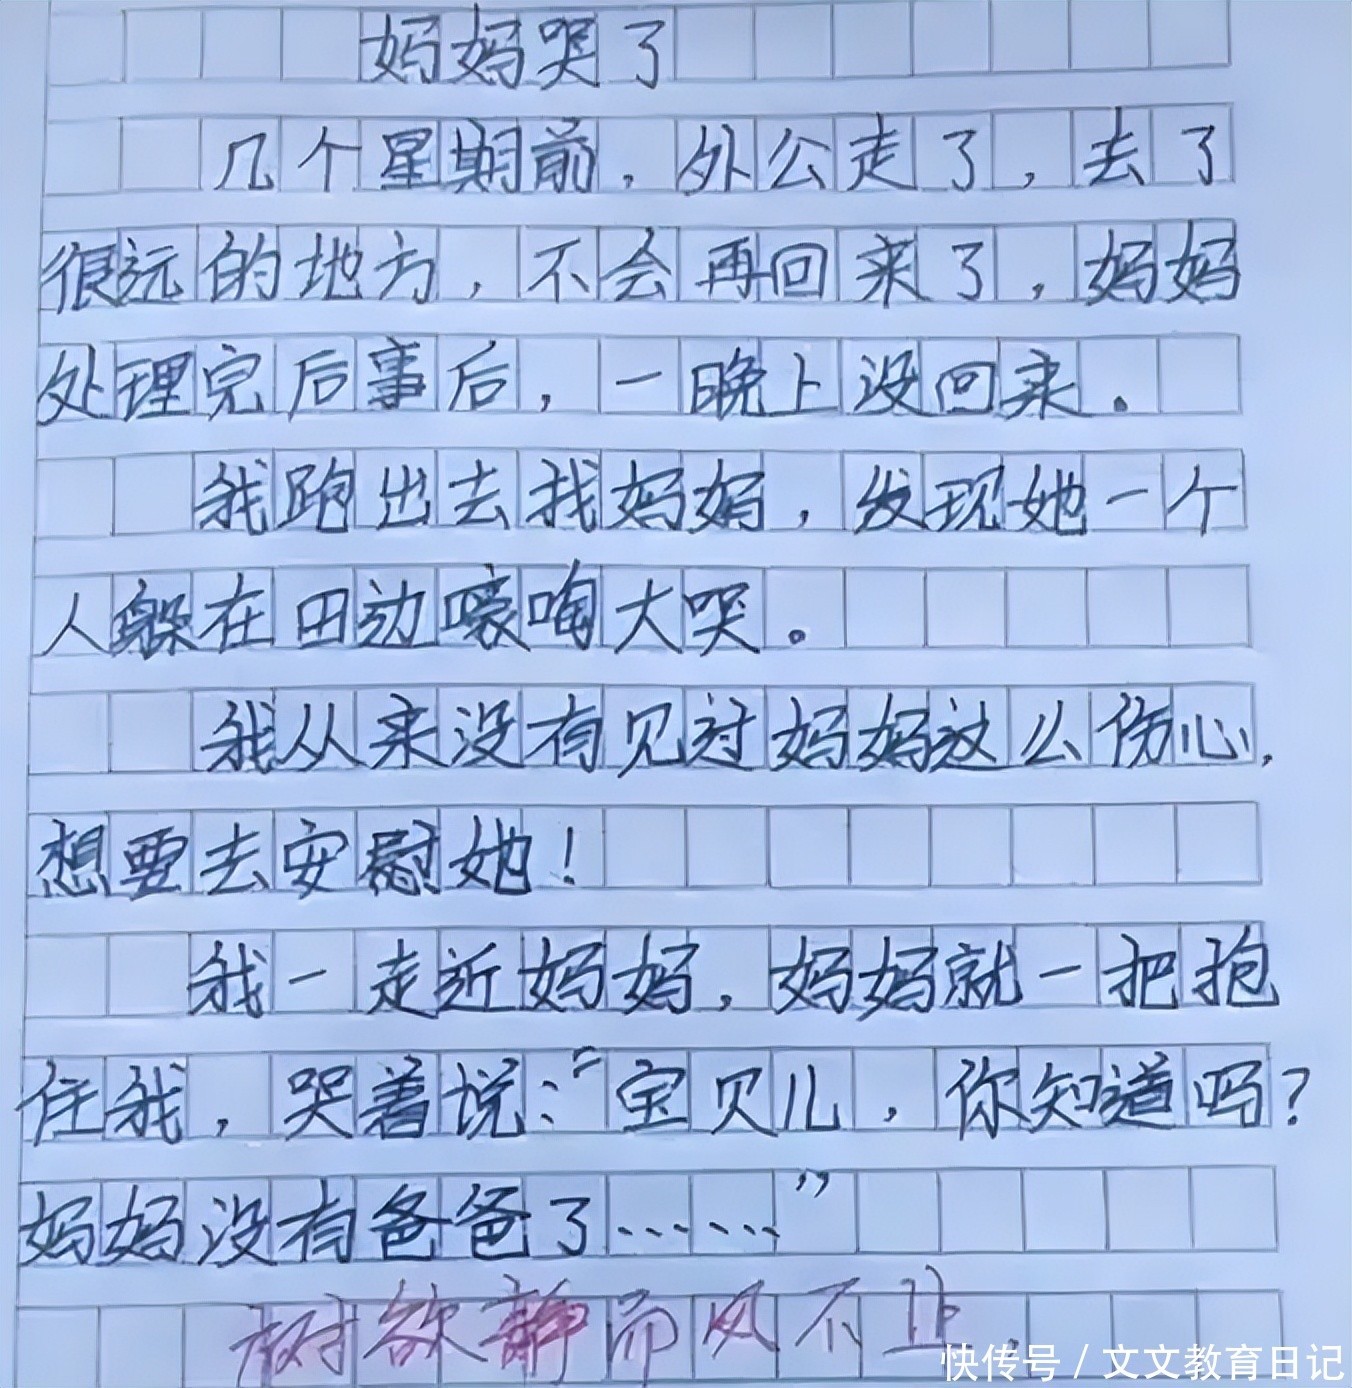 妈妈哭了
几个星期前，外公走了，去了
很远的地方，不会再回来了，妈妈
处理完后事后，一晚上没回来。
我跑出去找妈妈，发现她一个
人躲在田边嚎啕大哭。
我从来没有见过妈妈这么伤心，
想要去安慰她！
我一走近妈妈，妈妈就一把抱
住我，哭着说：“宝贝儿，你知道吗？
妈妈没有爸爸了……”
树欲静而风不止.
快传号 / 文文教育日记